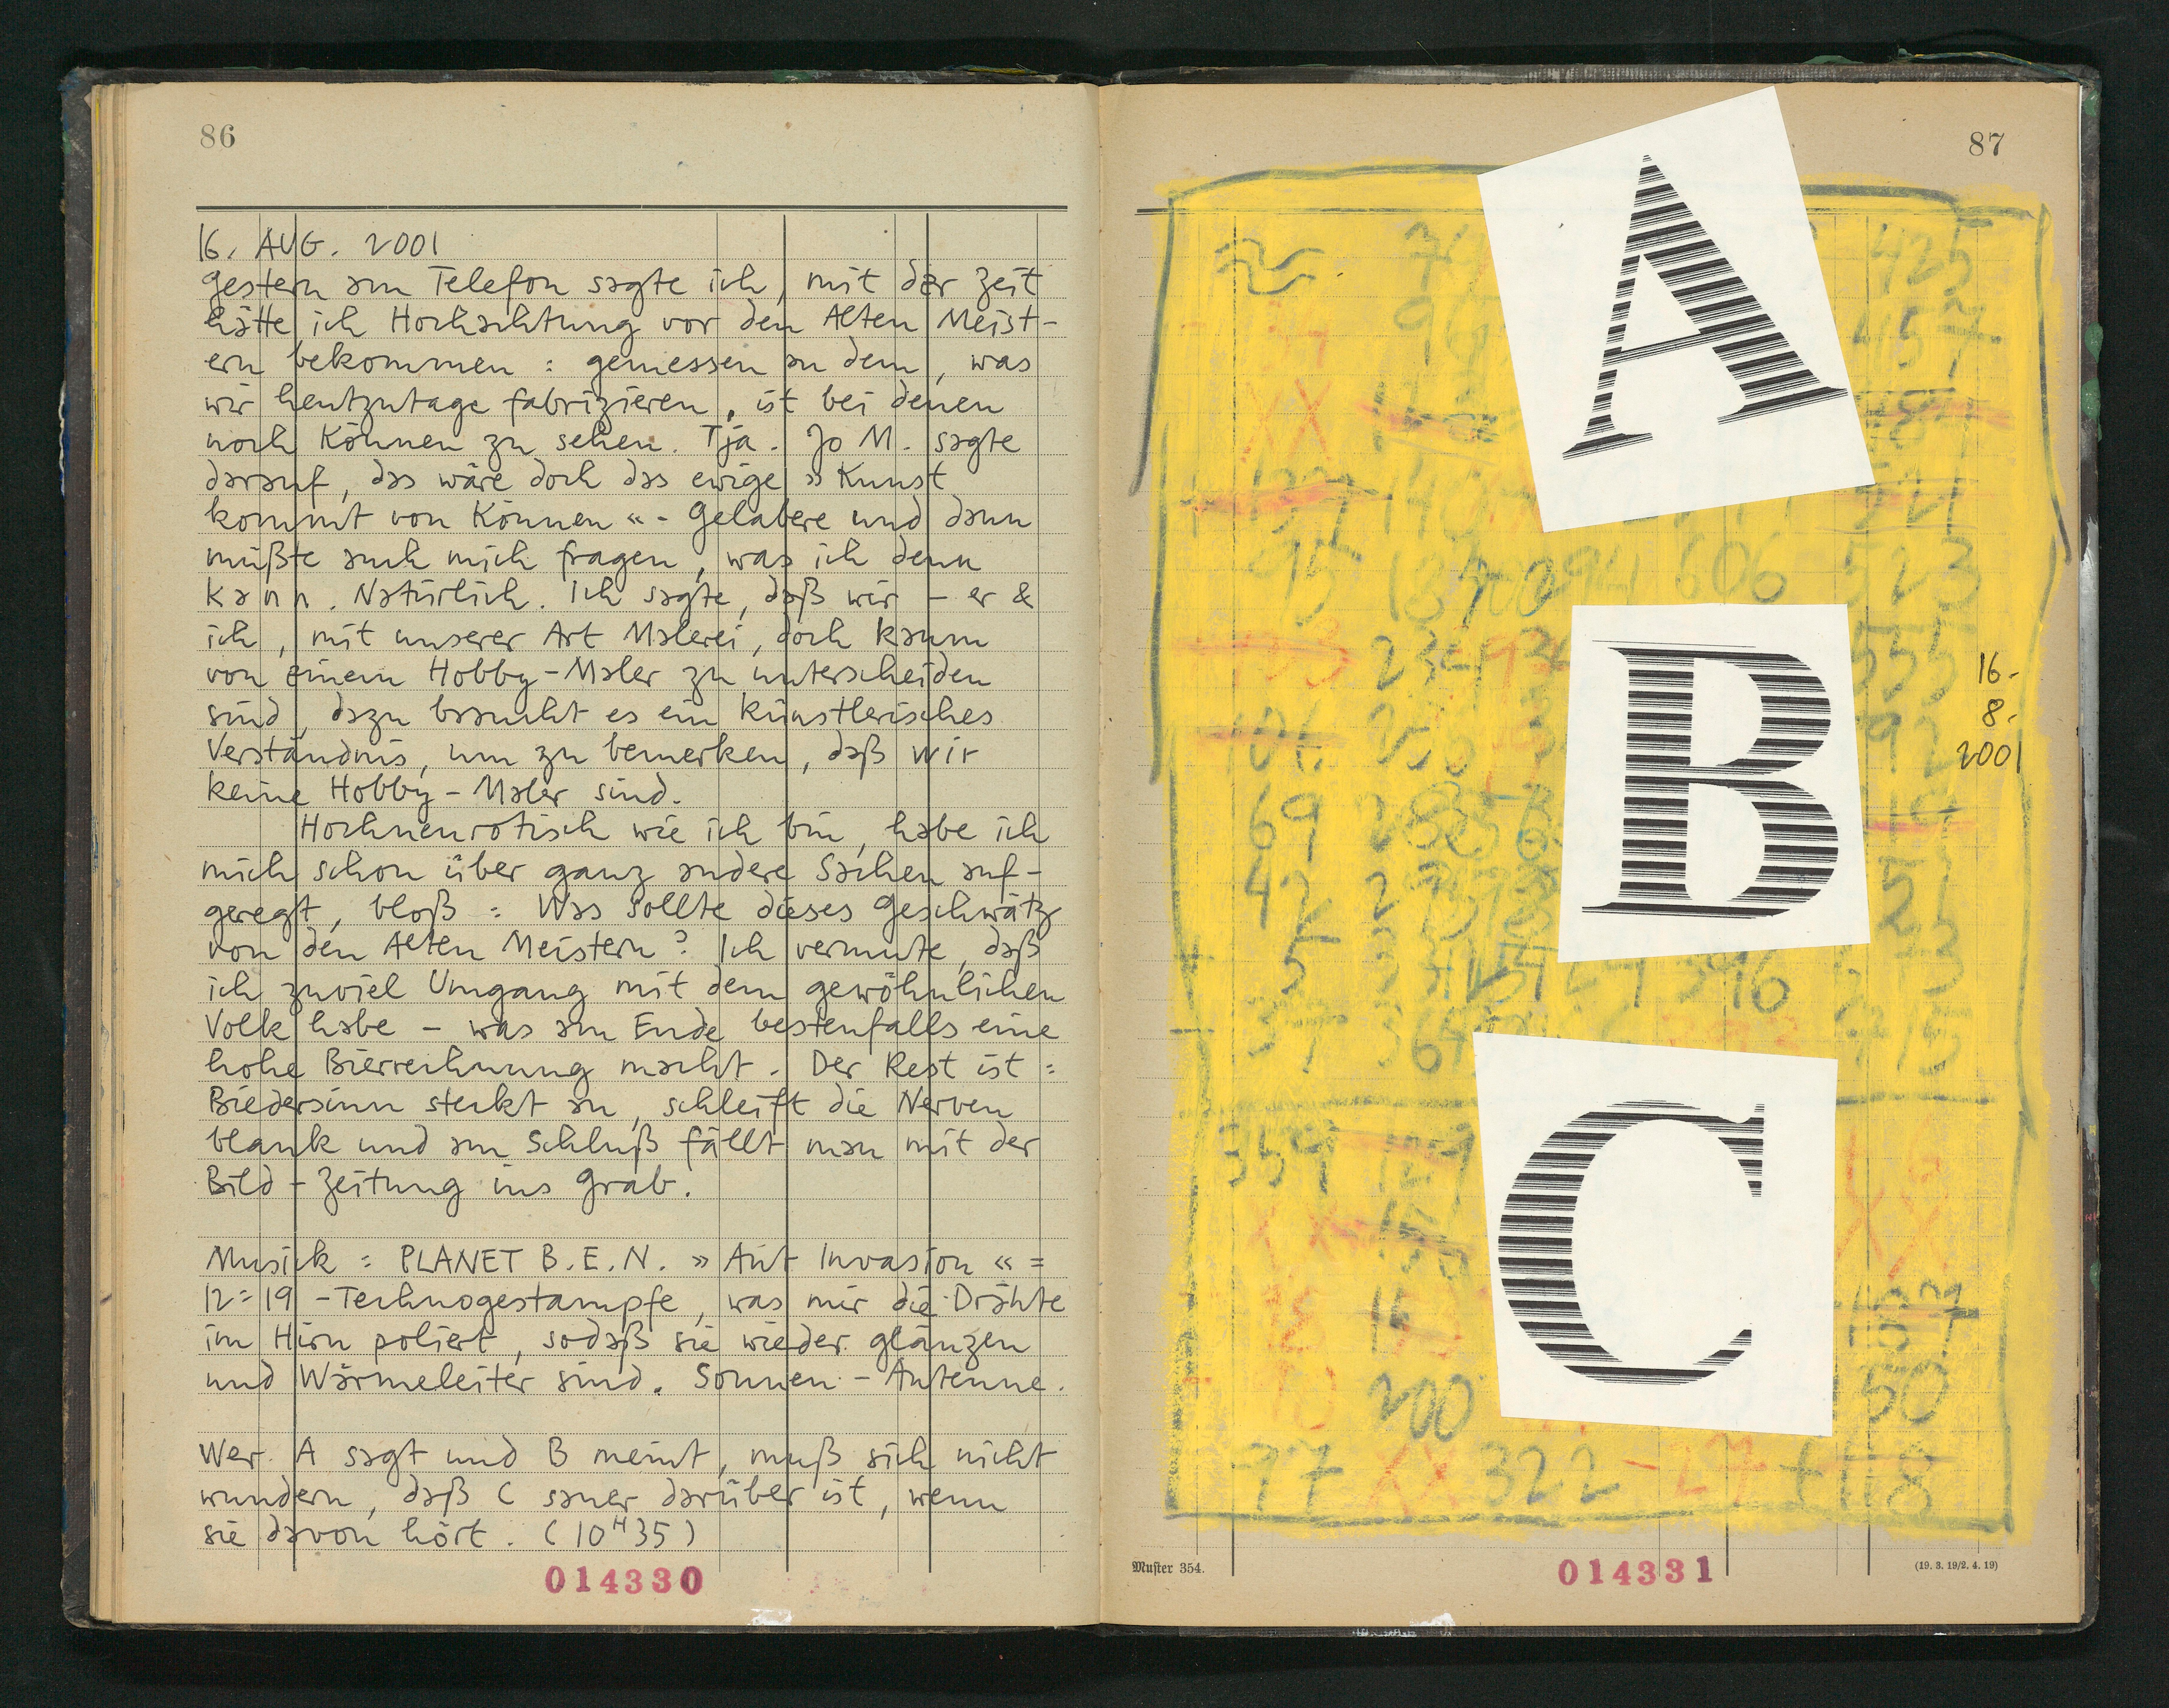 86
16. AUG. 2001
Gestern am Telefon sagte ich, mit der Zeit
hätte ich Hochachtung vor den Alten Meist-
ern bekommen: gemessen an dem, was
wir heutzutage fabrizieren, ist bei denen
noch Können zu sehen. Tja. Jo M. sagte
darauf, das wäre doch das ewige »Kunst
kommt von Können«-Gelabere und dann
müßte auch mich fragen, was ich denn
kann. Natürlich. Ich sagte, daß wir – er &
ich, mit unserer Art Malerei, doch kaum
von einem Hobby-Maler zu unterscheiden
sind, dazu braucht es ein künstlerisches
Verständnis, um zu bemerken, daß wir
keine Hobby-Maler sind.
Hochneurotisch wie ich bin, habe ich
mich schon über ganz andere Sachen auf-
geregt, bloß: Was sollte dieses Geschwätz
von den Alten Meistern? Ich vermute, daß
ich zuviel Umgang mit dem gewöhnlichen
Volk habe – was am Ende bestenfalls eine
hohe Bierrechnung macht. Der Rest ist:
Biedersinn steckt an, schleift die Nerven
blank und am Schluß fällt man mit der
Bild-Zeitung ins Grab.
Musick: PLANET B.E.N. »Ant Invasion« =
12:19-Technogestampfe, was mir die Drähte
im Hirn poliert, sodaß sie wieder glänzen
und Wärmeleiter sind. Sonnen-Antenne.
Wer A sagt und B meint, muß sich nicht
wundern, daß C sauer darüber ist, wenn
sie davon hört. (10H35)
014330
87
A
425
457
606 523
B
555
16-
8.
2001
69
42
396
37
715
C
359
200
50
97 XX 322 -27 +118
Muster 354.
014331
(19. 3. 19/2. 4. 19)